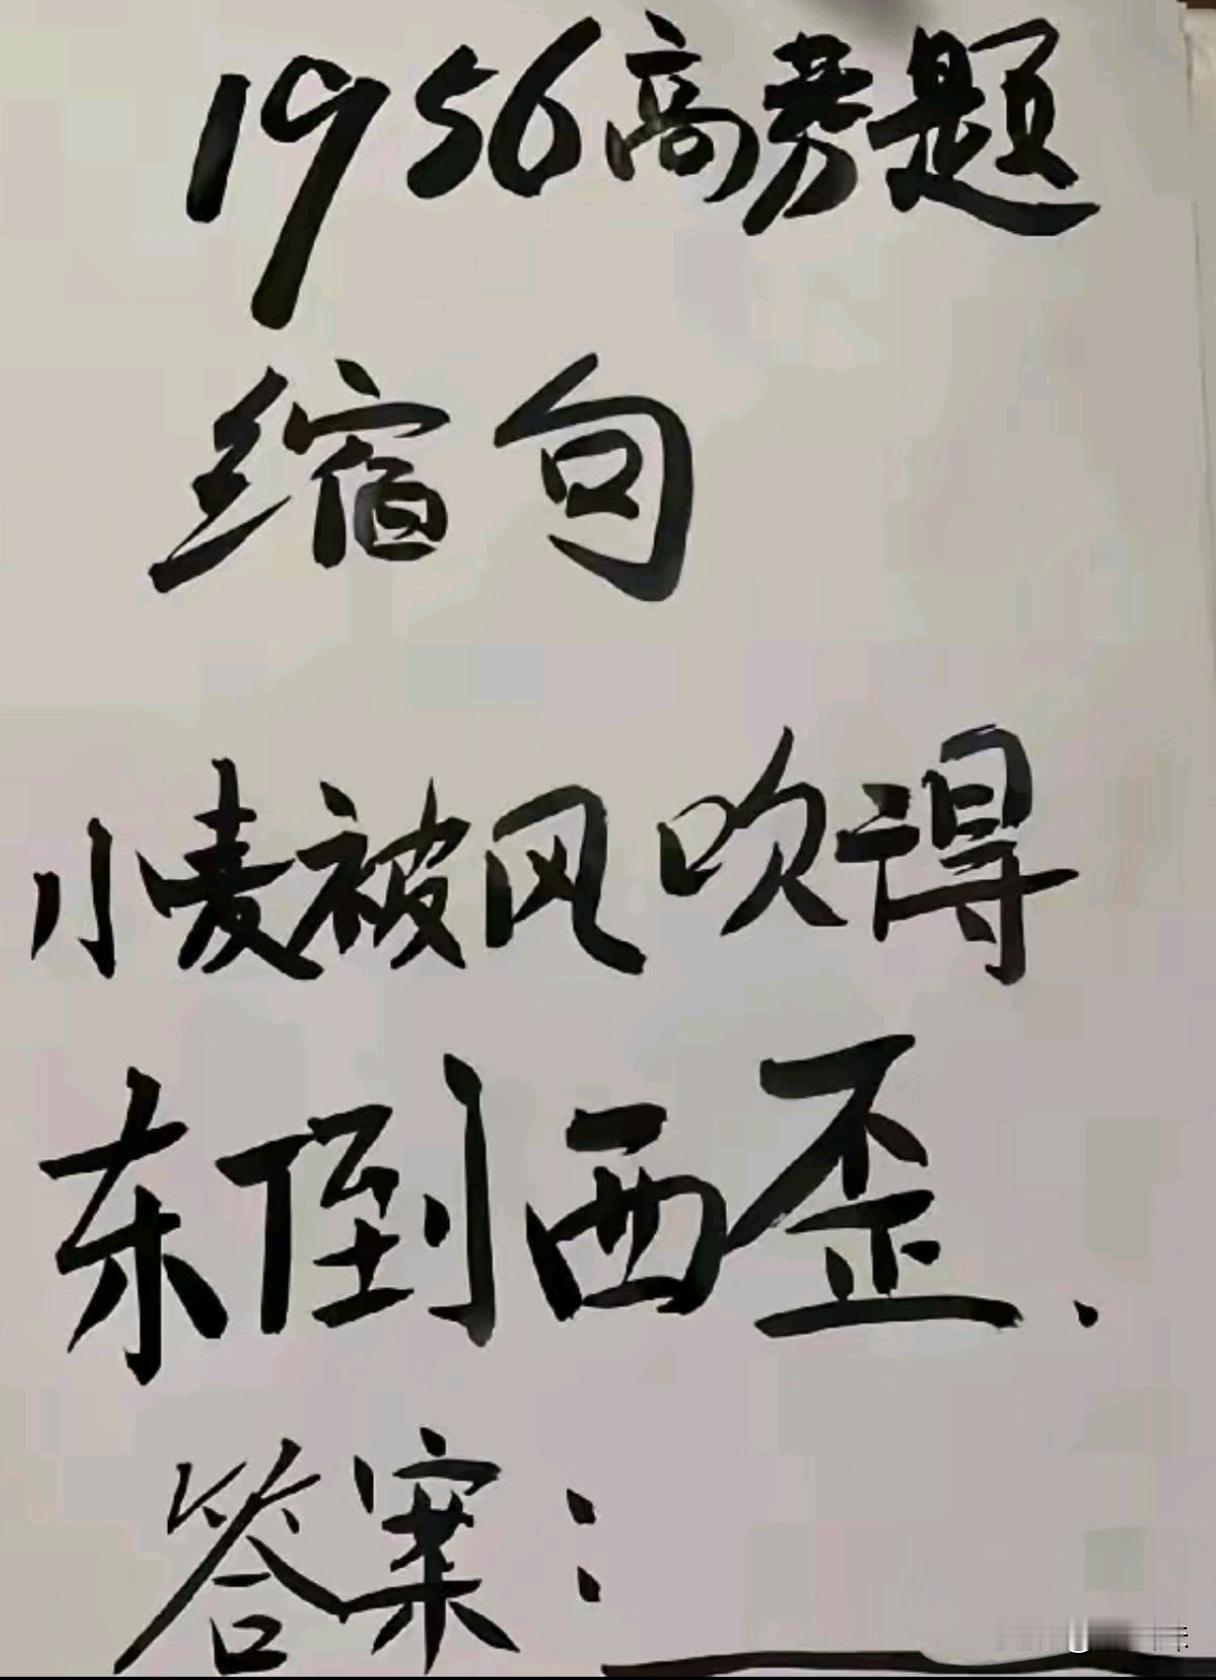 1956高考题
缩句
小麦被风吹得
东倒西歪.
答案: